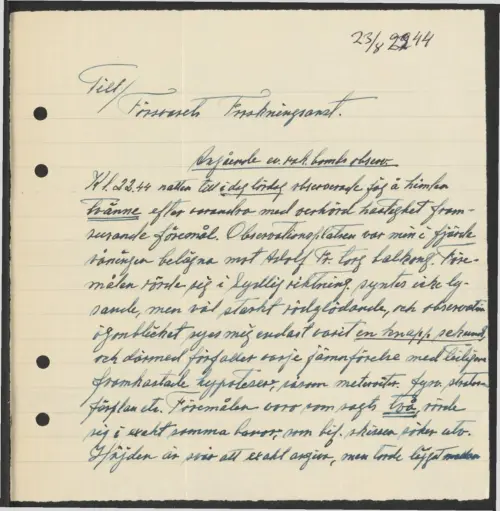 23/8 44
Till/
Försvarets Forskningsanst.
Angående ev. rak. bombs observ.
Kl. 22.44 natten till i dag lördag observerade jag å himlen
tvänne efter varandra med oerhörd hastighet fram-
susande föremål. Observationsplatsen var min i fjärde
våningen belägna mot Adolf Fr. torg balkong. Före-
målen rörde sig i sydlig riktning, syntes icke ly-
sande, men väl starkt rödglödande, och observation
ögonblicket synes mig endast varit en knapp sekund,
och därmed förfaller varje jämnförelse med
framkastade hypoteser, såsom meteorer,
flygplan etc. Föremålen voro som sagts två, rörde
sig i exakt samma banor, som bif. skissen söker utv.
Höjden är svår att exakt angiva, men torde legat